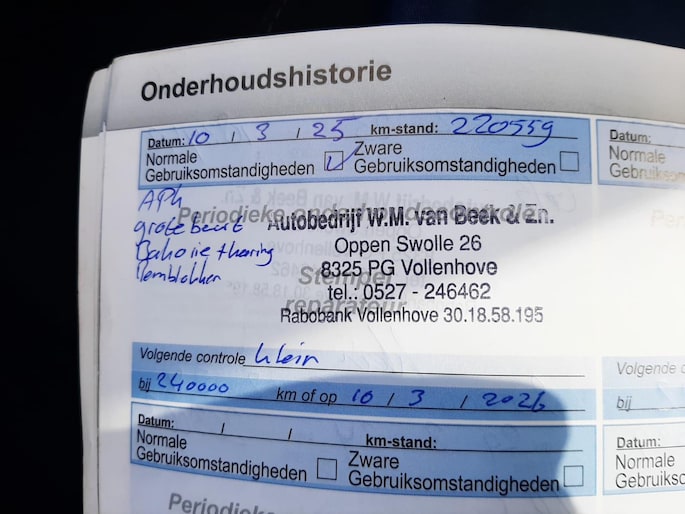 Onderhoudshistorie
Datum: 10 / 3 / 25 km-stand: 220559
Normale Gebruiksomstandigheden Zware Gebruiksomstandigheden
APK
grote beurt
Periodieke
Autobedrijf W.M. van Beek & Zn.
Oppen Swolle 26
8325 PG Vollenhove
tel.: 0527 - 246462
Rabobank Vollenhove 30.18.58.195
Stempel
reparateur
Volgende controle klein
bij 240000 km of op 10 / 3 / 2026
Datum: / / km-stand:
Normale Gebruiksomstandigheden Zware Gebruiksomstandigheden
Periodieke
Datum:
Normale
Gebruiksomst
Volgende c
bij
Datum:
Normale
Gebruiksc